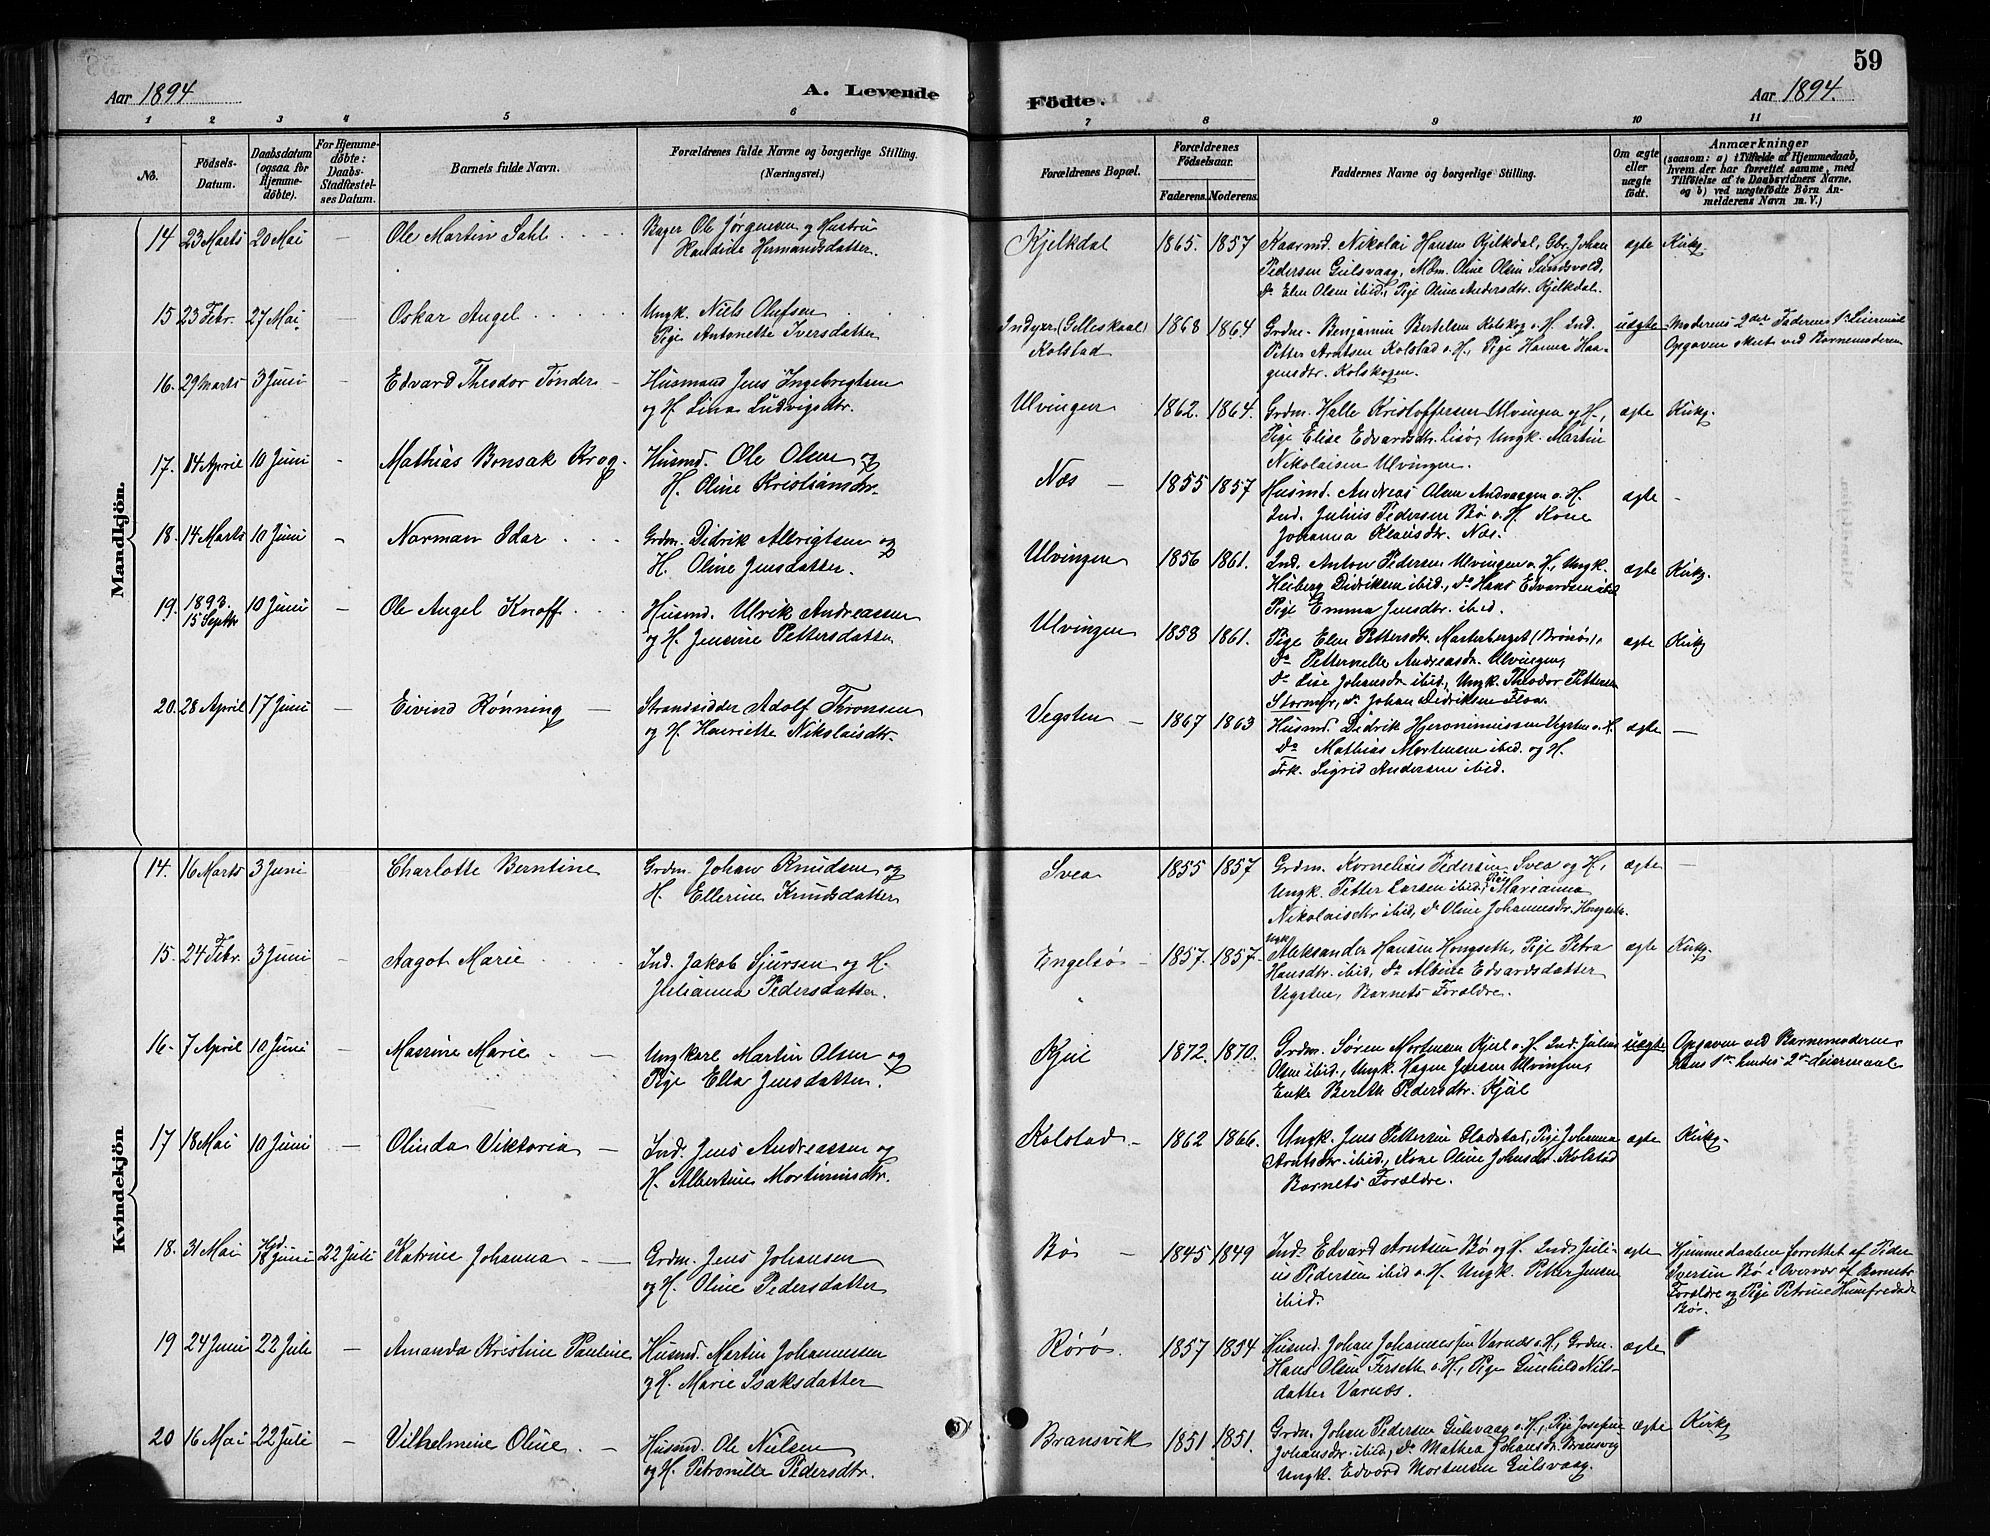 59
Aar 1894
A. Levende
Födte.
Aar 1894.
1 2 3 4 5 6
7 8 9 10 11
No.
Födsels-
Datum.
Daabsdatum
(ogsaa for
Hjemme-
döbte).
For Hjemme-
döbte:
Daabs-
Stadfæstel-
ses Datum.
Barnets fulde Navn.
Forældrenes fulde Navne og borgerlige Stilling.
(Næringsvei.)
Forældrenes Bopæl.
Forældrenes
Födselsaar.
Faderens. Moderens.
Faddernes Navne og borgerlige Stilling.
Om ægte
eller
uægte
födt.
Anmærkninger
(saasom: a) i Tilfælde af Hjemmedaab,
hvem der har forrettet samme, med
Tilföielse af to Daabsvidners Navne,
og b) ved uægtefödte Börn An-
melderens Navn m. V.)
Mandkjön.
14 23 Marts 20 Mai — Ole Martin Dahl
Ole Jørgensen og Hustru
Handrine Hermandsdatter.
Kjelkdal 1865. 1857 Kaarmd. Nikolai Hansen Kjelkdal, Gbr. Johan
Pedersen Geilsvaag, Mdm. Oline Olsen Sundsvold,
Do Elen Olsen ibid, Pige Oline Andersdtr. Kjelkdal.
ægte Kirkg.
15 23 Febr. 27 Mai — Oskar Angel
Ungk. Niels Olufsen
Pige Antonette Iversdatter
Indyr (Gilleskaal)
Kolstad
1868 1864 Grdm. Benjamin Bertelsen Kolskog o. H. Ind.
Petter Arntsen Kolstad o. H., Pige Hanna Haa-
gensdtr. Kolskogen.
uægte Moderens 2det Faderens 1ste Leiermaal
Opgaven skeet ved Barnemoderen
16. 29 Marts 3 Juni — Edvard Theodor Tönder —
Husmand Jens Ingebrigtsen
og H. Lina Ludvigsdtr.
Ulvingen 1862. 1864. Grdm. Halle Kristoffersen Ulvingen og H.,
Pige Elise Edvardsdtr. Lisø, Ungk. Martin
Nikolaisen Ulvingen.
ægte Kirkg.
17. 14 April 10 Juni — Mathias Bonsak Krog.
Husmd. Ole Olsen og
H. Oline Kristiansdtr.
Næs — 1855 1857 Husmd. Andreas Olsen Andvaagen o. H.
Ind. Julius Pedersen Bø o. H. Kone
Johanna Klausdtr. Næs.
ægte —
18. 14 Marts 10 Juni — Norman Idar
Grdm. Didrik Albrigtsen og
H. Oline Jensdatter.
Ulvingen 1856 1861. Ind. Anton Pedersen Ulvingen o. H., Ungk.
Heiberg Didriksen ibid, do Hans Edvardsen ibid
Pige Emma Jensdtr. ibid.
ægte Kirkg.
19. 1893. 15 Septbr 10 Juni — Ole Angel Knoff
Husmd. Ulrik Andreassen
og H. Jensine Pettersdatter
Ulvingen 1858 1861. Pige Elen Pettersdtr. (Brönö),
Do Petternelle Andreasdr. Ulvingen,
do Lise Johansdr ibid, Ungk. Theodor Pettersen
Stormyr, do Johan Didriksen Floa.
ægte Kirkg
20. 28 April 17 Juni — Eivind Rønning —
Strandsidder Adolf Thronsen
og H. Henriette Nikolaisdtr.
Vegsten — 1867 1863 Husmd. Didrik Hjeronimussen Vegsten o. H.
Do Mathias Mortensen ibid. og H.
Frk. Sigrid Andersen ibid.
ægte —
Kvindekjön
14. 16 Marts 3 Juni — Charlotte Berntine
Grdm. Johan Knudsen og
H. Ellerine Knudsdatter
Svea 1855 1857 Grdm. Kornelius Pedersen Svea og H.,
Ungk. Petter Larsen ibid, Pige Marianna
Nikolaisdtr ibid, do Oline Johannesdtr.
ægte —
15. 24 Febr. 3 Juni — Aagot Marie
Ind. Jakob Sjursen og H.
Julianna Pedersdatter.
Engelsø 1857. 1857. Ungk. Aleksander Hansen Hongseth, Pige Petra
Hansdtr. ibid, do Albine Edvardsdatter
Vegsten, Barnets Forældre.
ægte Kirkg.
16. 7 April 10 Juni — Masrine Marie —
Ungkarl Martin Olsen og
Pige Ella Jensdatter.
Kjul 1872. 1870. Grdm. Søren Mortensen Kjul o. H. Ind. Julius
Olsen ibid., Ungk. Hagen Jensen Ulvingen,
Enke Berith Pedersdtr. Kjøl
uægte Opgaven ved Barnemoderen
Hans 1ste hendes 2det Leiermaal
17 18 Mai 10 Juni — Olinda Viktoria —
Ind. Jens Andreassen og
H. Albertine Mortinusdtr.
Kolstad — 1862 1866. Ungk. Jens Pettersen Gladstad, Pige Johanna
Arntsdtr. ibid., Kone Oline Johnsdr. Kolstad
Barnets Forældre.
ægte Kirkg.
18. 31 Mai Hjd. 18 Juni 22 Juli Katrine Johanna —
Grdm. Jens Johansen
og H. Oline Pedersdatter
Bø — 1845 1849 Inds Edvard Arntsen Bø og H. Inds Juli-
us Pedersen ibid o. H. Ungk. Petter Jensen
ibid.
ægte Hjemmedaaben forrettet af Peder
Iversen Bø i Overvær af Barnets
Forældre og Pige Petrine Humfredsd.
Bø.
19 24 Juni 22 Juli — Amanda Kristine Pauline
Husmd. Martin Johannessen
og H. Marie Isaksdatter
Rørø. 1857 1854 Husmd. Johan Johannessen Varnæs o. H., Grdm.
Hans Olsen Forseth o. H., Pige Gunhild Nils-
datter Varnæs.
ægte
20 16 Mai 22 Juli — Vilhelmine Oline —
Husmd. Ole Nielsen
og H. Petronille Pedersdtr.
Bransvik 1851 1851. Grdm. Johan Pedersen Geilsvaag o. H., Pige Josefine
Johansdtr. ibid, do Mathea Johansdr. Bransvig
Ungk. Edvard Mortensen Geilsvaag.
ægte Kirkg